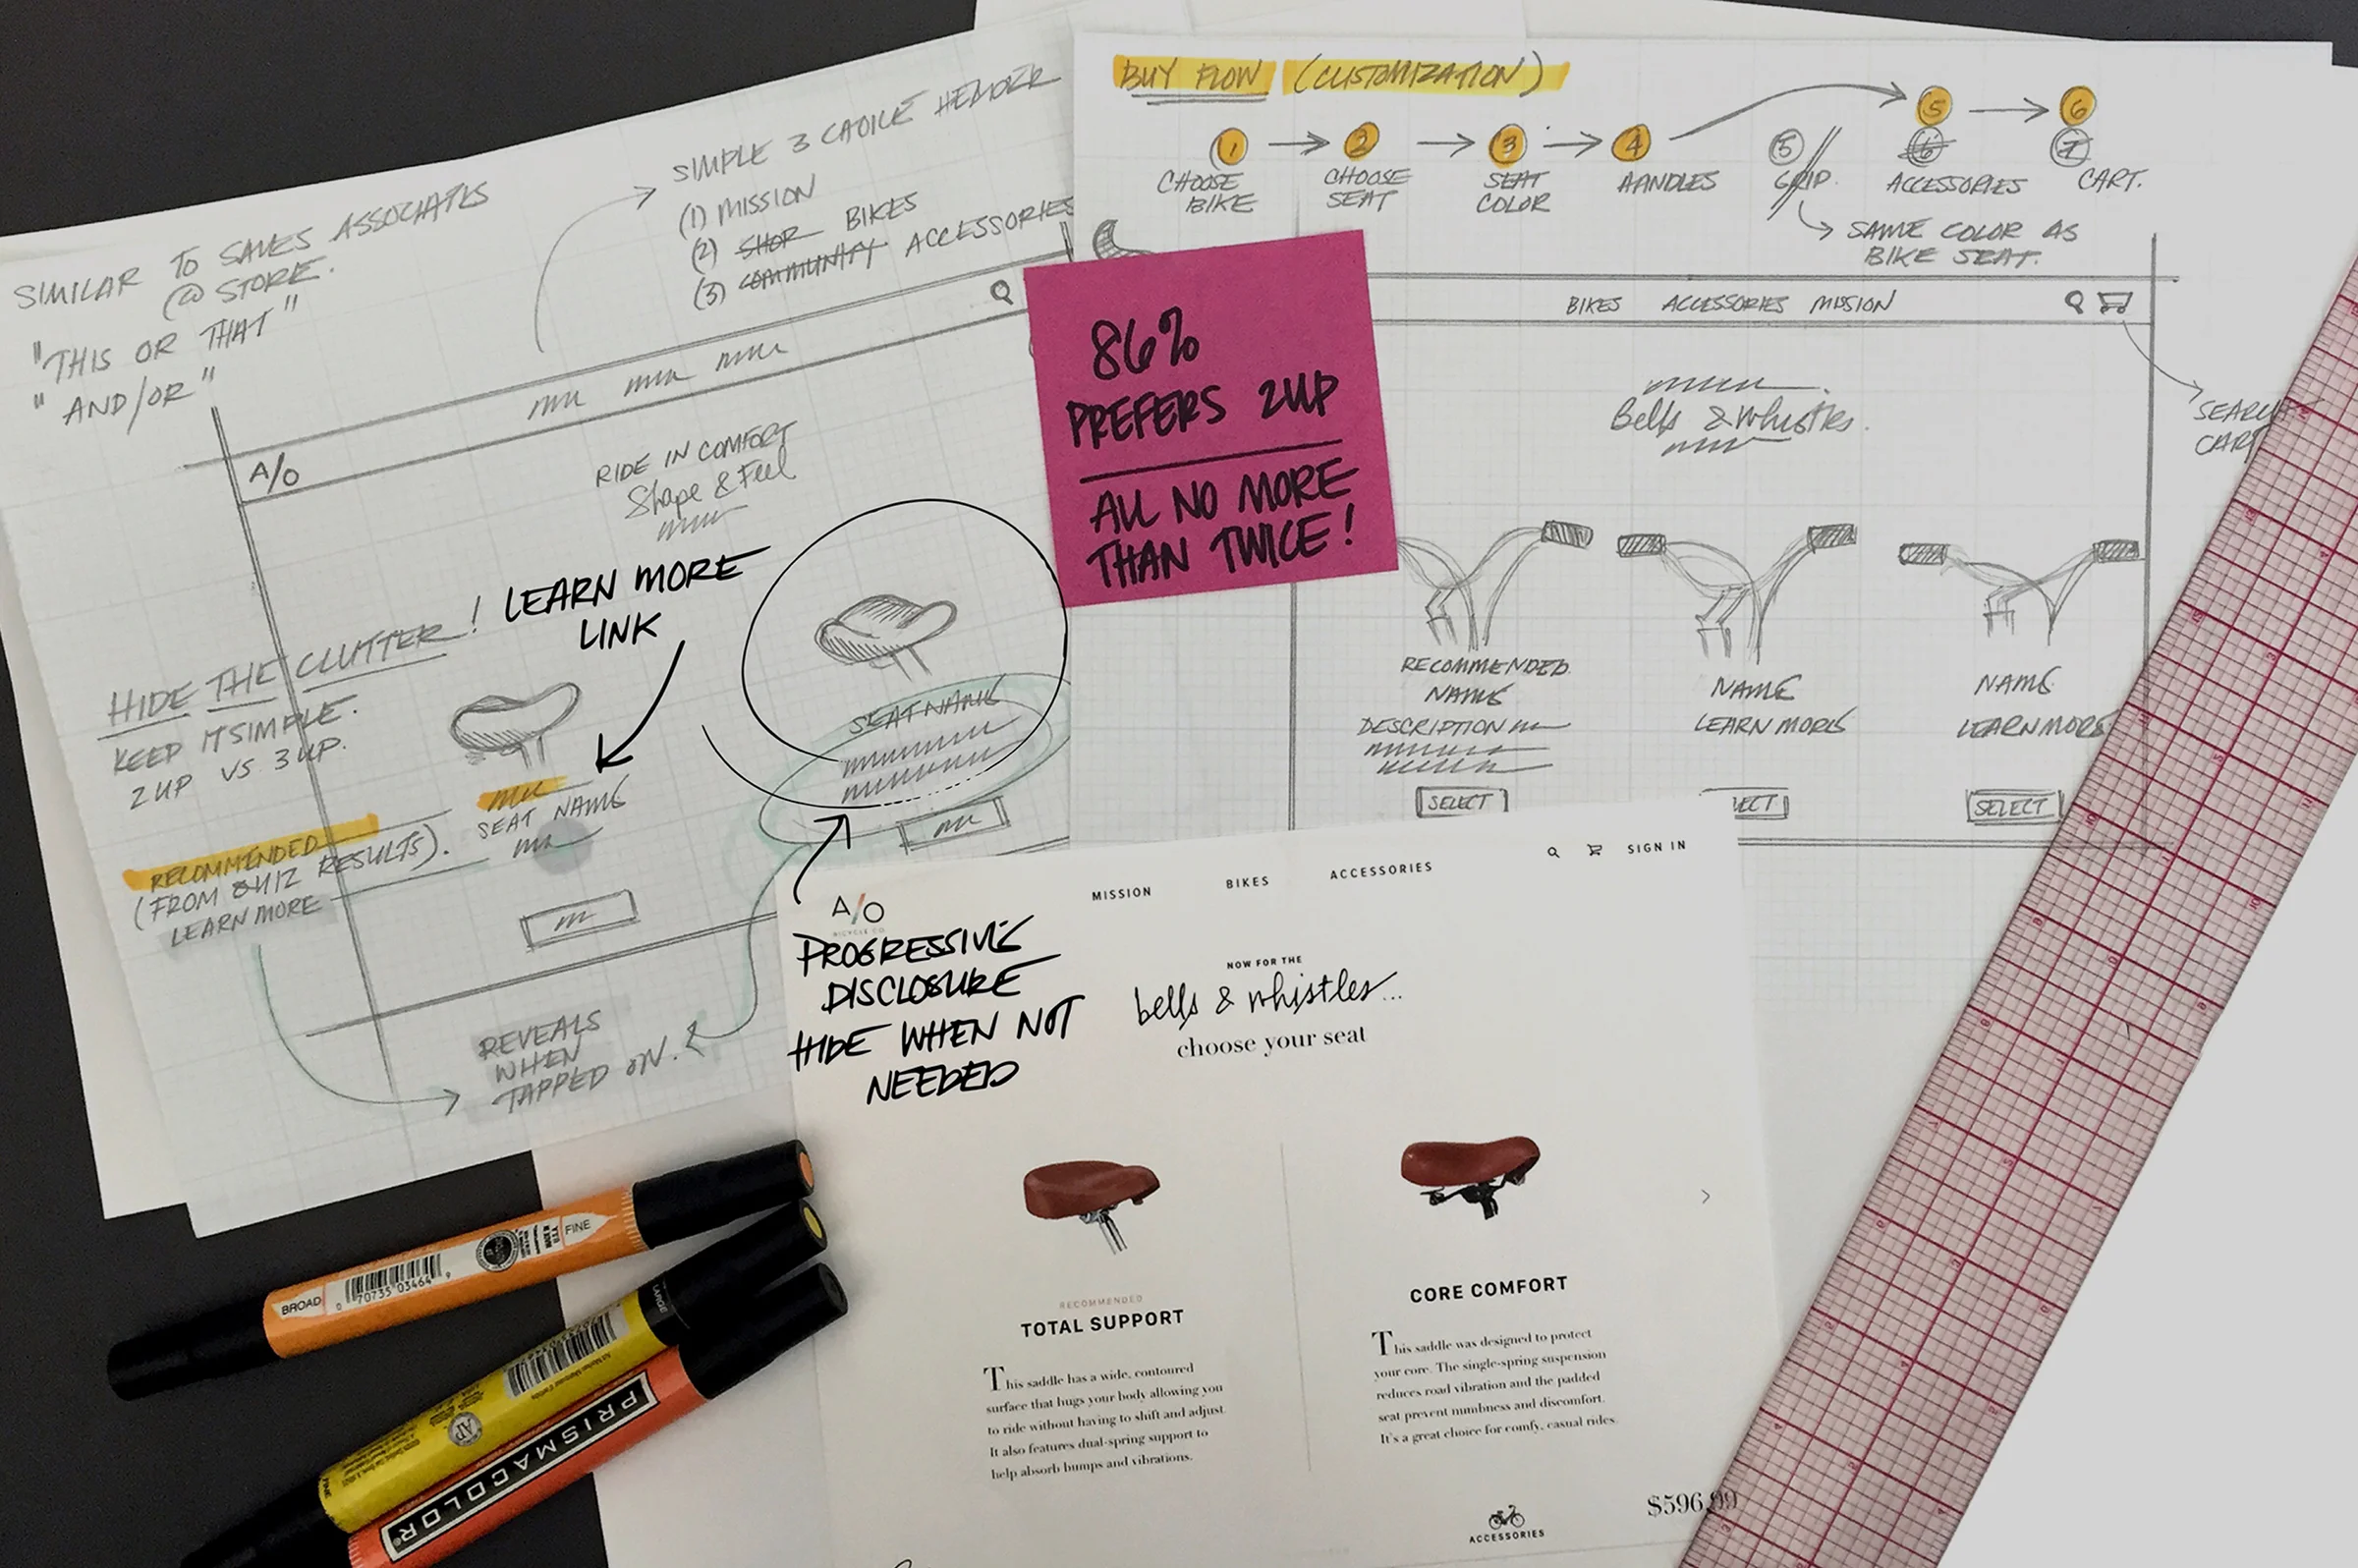 SIMILAR TO SALES ASSOCIATES
@ STORE.
"THIS OR THAT"
"AND/OR"
SIMPLE 3 CHOICE HEADER
(1) MISSION
(2) SHOP BIKES
(3) COMMUNITY ACCESSORIES
A/O
RIDE IN COMFORT
Shape & Feel
LEARN MORE
LINK
HIDE THE CLUTTER!
KEEP IT SIMPLE.
2UP VS. 3UP.
RECOMMENDED
(FROM QUIZ RESULTS).
LEARN MORE
SEAT NAME
SEAT NAME
REVEALS
WHEN
TAPPED ON.
BUY FLOW (CUSTOMIZATION)
1 2 3 4 5 5 6
6 7
CHOOSE
BIKE
CHOOSE
SEAT
SEAT
COLOR
HANDLES
GRIP.
ACCESSORIES
CART.
SAME COLOR AS
BIKE SEAT.
86%
PREFERS 2UP
ALL NO MORE
THAN TWICE!
BIKES ACCESSORIES MISSION
Bells & Whistles.
RECOMMENDED
NAME
DESCRIPTION
SELECT
NAME
LEARN MORE
NAME
LEARN MORE
SELECT
A/O
BICYCLE CO.
MISSION BIKES ACCESSORIES SIGN IN
PROGRESSIVE
DISCLOSURE
HIDE WHEN NOT
NEEDED
NOW FOR THE
bells & whistles...
choose your seat
RECOMMENDED
TOTAL SUPPORT
This saddle has a wide, contoured
surface that hugs your body allowing you
to ride without having to shift and adjust.
It also features dual-spring support to
help absorb bumps and vibrations.
CORE COMFORT
This saddle was designed to protect
your core. The single-spring suspension
reduces road vibration and the padded
seat prevent numbness and discomfort.
It's a great choice for comfy, casual rides.
ACCESSORIES
$596.99
BROAD
0 70735 03464 9
FINE
LARGE
AP
PRISMACOLOR